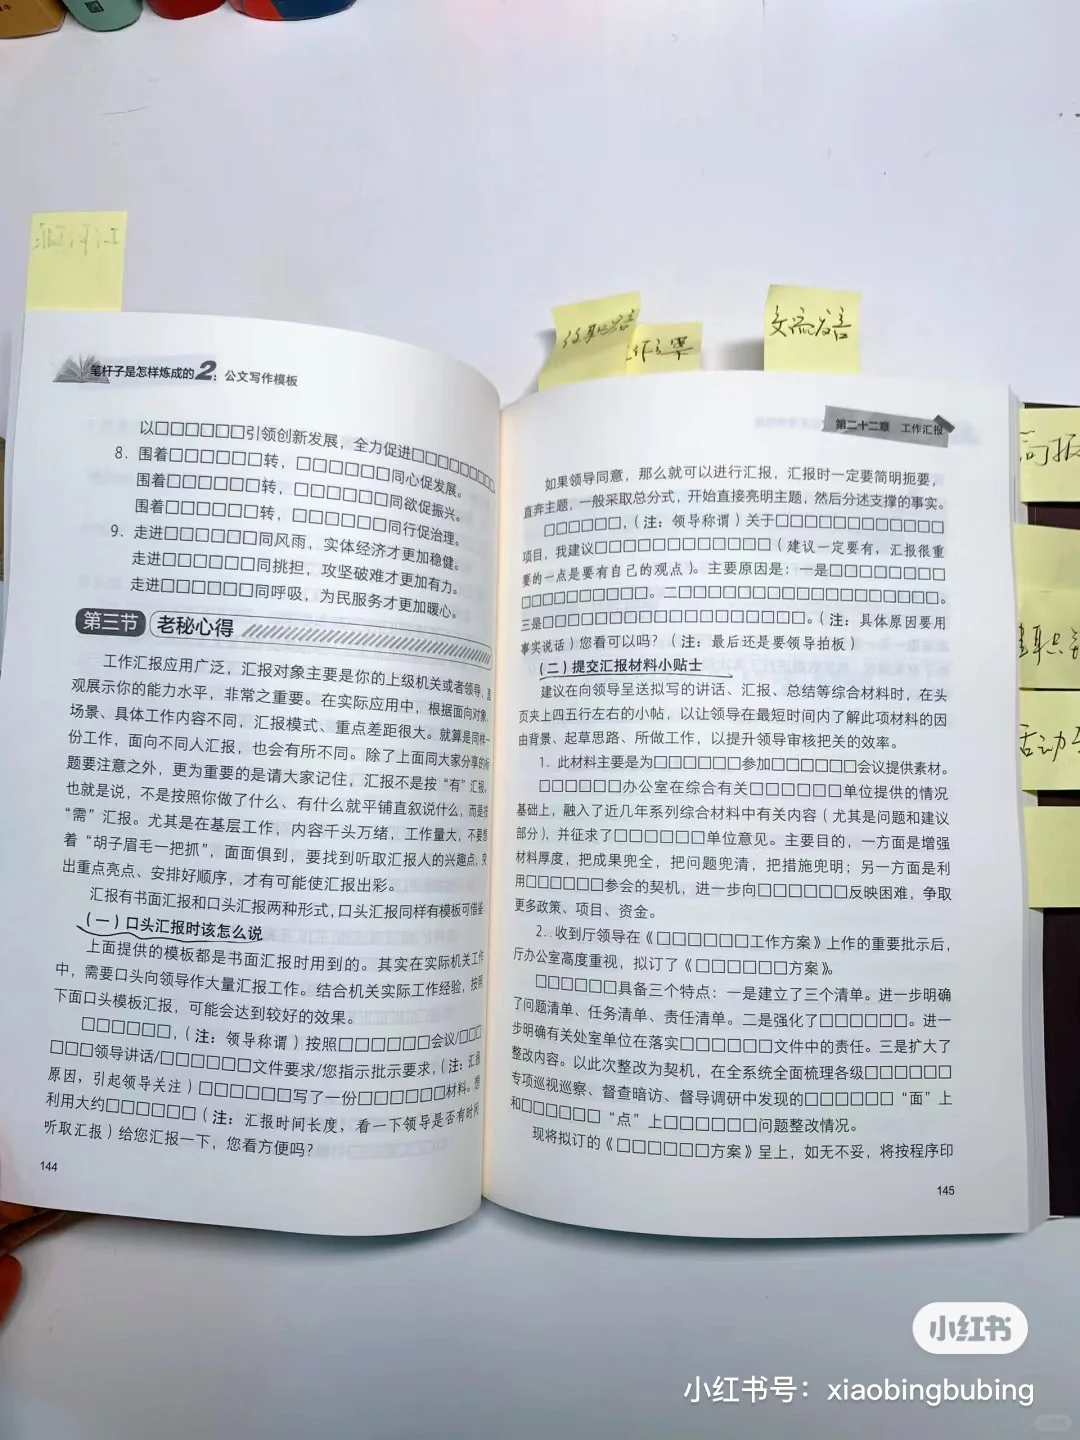 笔杆子是怎样炼成的2：公文写作模板
以□□□□□□引领创新发展，全力促进□□□□□□□□。
8. 围着□□□□□□转，□□□□□□同心促发展。
围着□□□□□□转，□□□□□□同欲促振兴。
围着□□□□□□转，□□□□□□同行促治理。
9. 走进□□□□□□同风雨，实体经济才更加稳健。
走进□□□□□□同挑担，攻坚破难才更加有力。
走进□□□□□□同呼吸，为民服务才更加暖心。
第三节 老秘心得
工作汇报应用广泛，汇报对象主要是你的上级机关或者领导，直
观展示你的能力水平，非常之重要。在实际应用中，根据面向对象、
场景、具体工作内容不同，汇报模式、重点差距很大。就算是同样一
份工作，面向不同人汇报，也会有所不同。除了上面同大家分享的标
题要注意之外，更为重要的是请大家记住，汇报不是按“有”汇报，
也就是说，不是按照你做了什么、有什么就平铺直叙说什么，而是按
“需”汇报。尤其是在基层工作，内容千头万绪，工作量大，不要想
着“胡子眉毛一把抓”，面面俱到，要找到听取汇报人的兴趣点，突
出重点亮点、安排好顺序，才有可能使汇报出彩。
汇报有书面汇报和口头汇报两种形式，口头汇报同样有模板可借鉴。
（一）口头汇报时该怎么说
上面提供的模板都是书面汇报时用到的。其实在实际机关工作
中，需要口头向领导作大量汇报工作。结合机关实际工作经验，按照
下面口头模板汇报，可能会达到较好的效果。
□□□□□□，（注：领导称谓）按照□□□□□□会议/□□□
□□□领导讲话/□□□□□□文件要求/您指示批示要求，（注：汇报
原因，引起领导关注）□□□□□□写了一份□□□□□□材料。想
利用大约□□□□□□（注：汇报时间长度，看一下领导是否有时间
听取汇报）给您汇报一下，您看方便吗？
144
交流发言
第二十二章 工作汇报
如果领导同意，那么就可以进行汇报，汇报时一定要简明扼要，
直奔主题，一般采取总分式，开始直接亮明主题，然后分述支撑的事实。
□□□□□□，（注：领导称谓）关于□□□□□□□□□□□□
项目，我建议□□□□□□□□□□□□（建议一定要有，汇报很重
要的一点是要有自己的观点）。主要原因是：一是□□□□□□□□
□□□□□□□□□。二□□□□□□□□□□□□□□□□□□。
三是□□□□□□□□□□□□□□□□□。（注：具体原因要用
事实说话）您看可以吗？（注：最后还是要领导拍板）
（二）提交汇报材料小贴士
建议在向领导呈送拟写的讲话、汇报、总结等综合材料时，在头
页夹上四五行左右的小帖，以让领导在最短时间内了解此项材料的因
由背景、起草思路、所做工作，以提升领导审核把关的效率。
1. 此材料主要是为□□□□□□参加□□□□□□会议提供素材。
□□□□□□办公室在综合有关□□□□□□单位提供的情况
基础上，融入了近几年系列综合材料中有关内容（尤其是问题和建议
部分），并征求了□□□□□□单位意见。主要目的，一方面是增强
材料厚度，把成果兜全，把问题兜清，把措施兜明；另一方面是利
用□□□□□□参会的契机，进一步向□□□□□□反映困难，争取
更多政策、项目、资金。
2. 收到厅领导在《□□□□□□工作方案》上作的重要批示后，
厅办公室高度重视，拟订了《□□□□□□方案》。
□□□□□□具备三个特点：一是建立了三个清单。进一步明确
了问题清单、任务清单、责任清单。二是强化了□□□□□□。进一
步明确有关处室单位在落实□□□□□□文件中的责任。三是扩大了
整改内容。以此次整改为契机，在全系统全面梳理各级□□□□□□
专项巡视巡察、督查暗访、督导调研中发现的□□□□□□“面”上
和□□□□□□“点”上□□□□□□问题整改情况。
现将拟订的《□□□□□□方案》呈上，如无不妥，将按程序印
145
活动
小红书
小红书号：xiaobingbubing